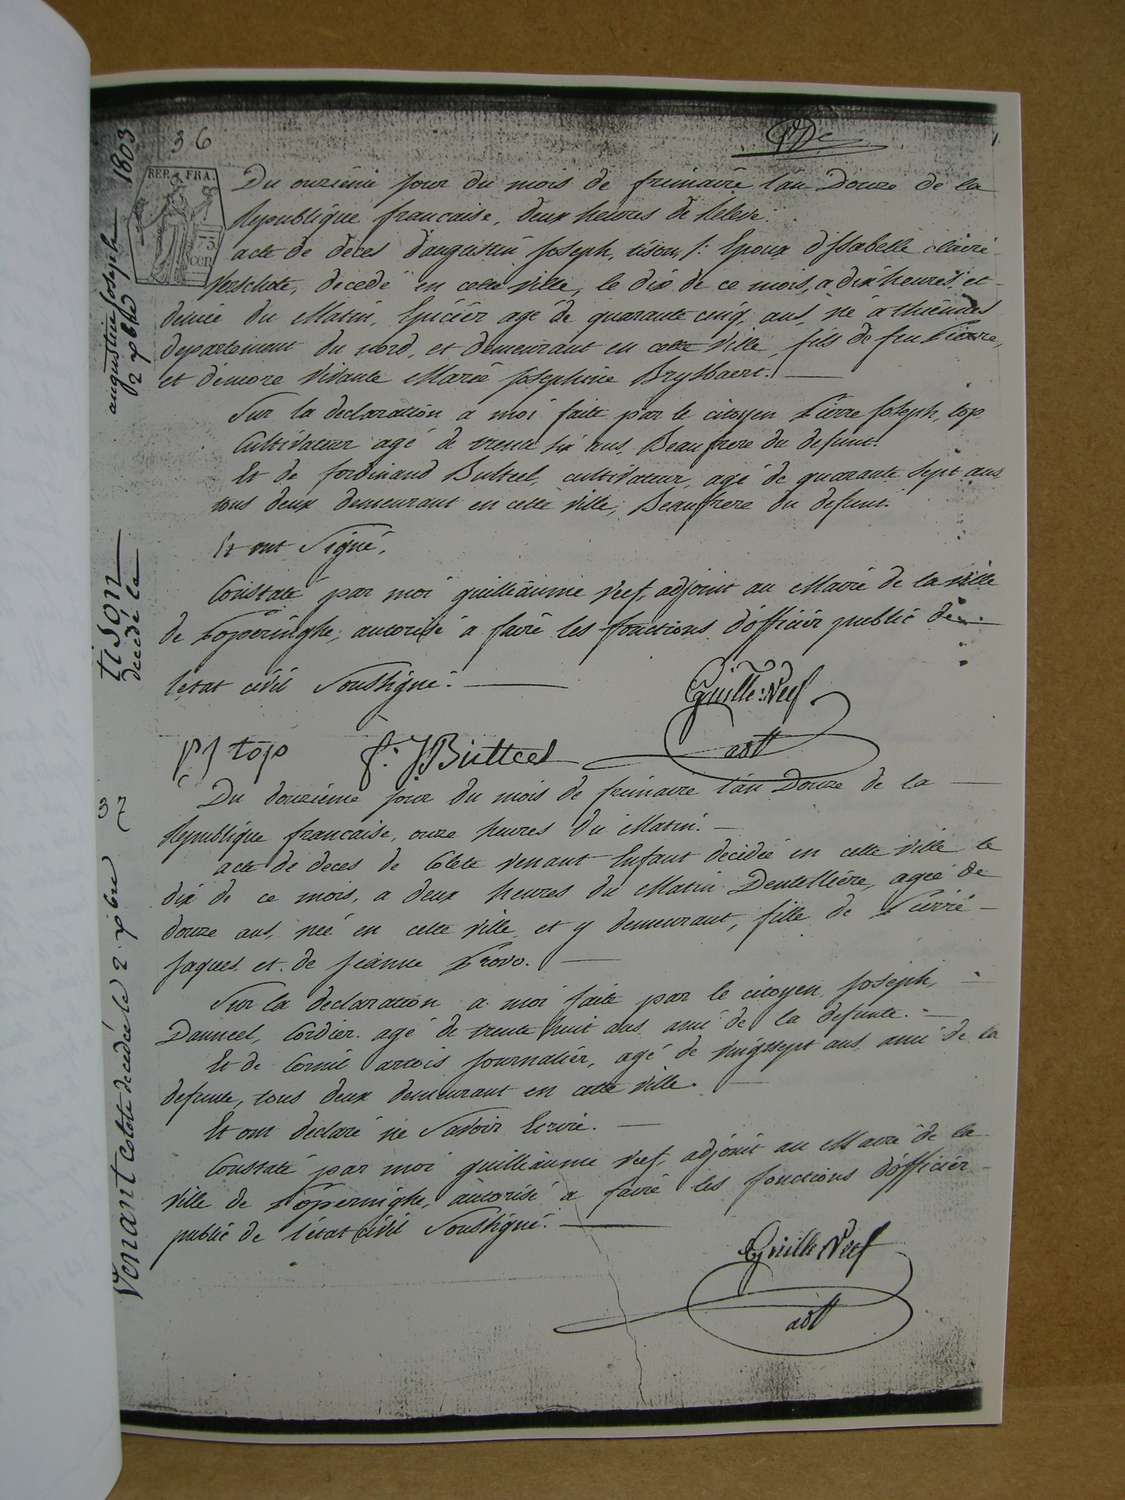 36
1803
REP. FRA.
75
CEN
Du onzième jour du mois de frimaire l'an Douze de la
Republique francaise, deux heures de Relevé.
acte de deces d'augustin Joseph tison, /: Epoux d'Isabelle claire
decedé en cette ville, le dix de ce mois, a dix heures et
demie du Matin, Epicier agé de quarante cinq ans, né a thiennes
departement du nord, et demeurant en cette ville, fils de feu Pierre,
et demore vivante Marie Josephine Brysbaert. —
Sur la declaration a moi faite par le citoyen Pierre Joseph top
Cultivateur agé de trente six ans, Beaufrere du defunt.
Et de ferdinand Bulteel, cultivateur, agé de quarante sept ans
tous deux demeurant en cette ville, Beaufrere du defunt.
Et ont Signé.
Constaté par moi guilleaume Neef, adjoint au Maire de la ville
de Poperinghe, autorisé a faire les fonctions d'officier public de
l'etat civil Soussigné. —
Guille: Neef
adt
pj top
f. J. Bulteel
augustin Joseph
2 xbre
tison
decedé le
37
Du douzième jour du mois de frimaire l'an Douze de la —
Republique francaise, onze heures du Matin. —
acte de deces de Colete venant Enfant decidée en cette ville le
dix de ce mois, a deux heures du Matin Dentellière, agée de
douze ans, née en cette ville et y demeurant, fille de Pierre —
Jaques et de Jeanne Provo. —
Sur la declaration a moi faite par le citoyen Joseph
Danneel, Cordier agé de trente huit ans ami de la defunte. —
Et de Cornil artois Journalier, agé de vingtsept ans ami de la
defunte, tous deux demeurant en cette ville. —
Et ont declaré ne Savoir Ecrire. —
Constaté par moi guilleaume Neef, adjoint au Maire de la
ville de Poperinghe, autorisé a faire les fonctions d'officier
public de l'etat civil Soussigné. —
Guille: Neef
adt
Venant Colete decedée le 2 xbre